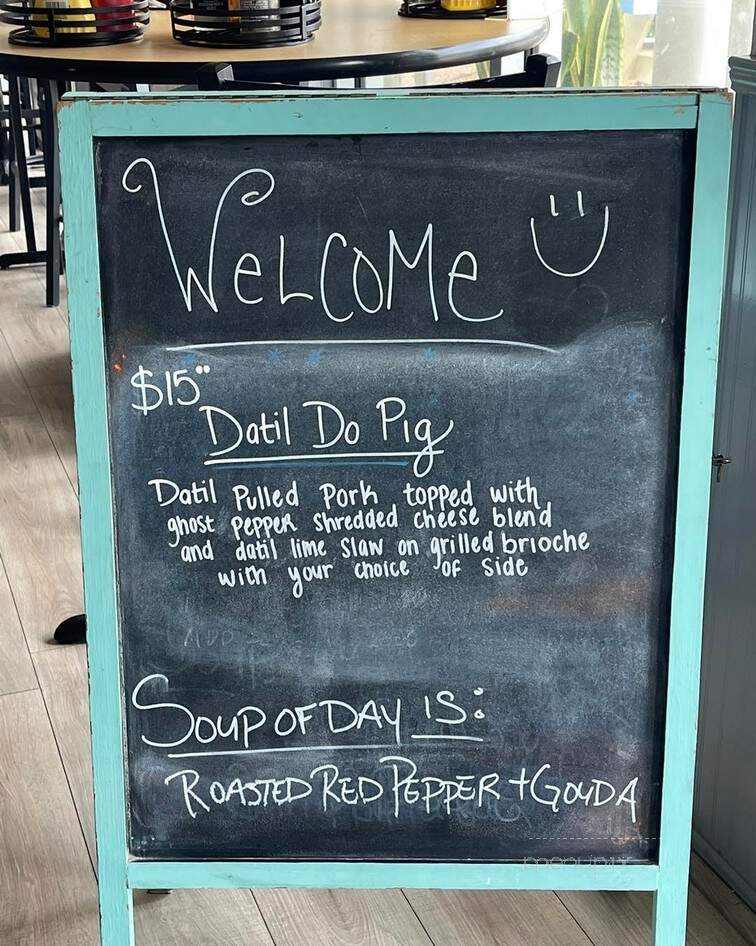 WeLCOMe
$15"
Datil Do Pig
Datil Pulled Pork topped with
ghost pepper shredded cheese blend
and datil lime slaw on grilled brioche
with your choice of side
SOUP OF DAY IS:
ROASTED RED PEPPER + GOUDA